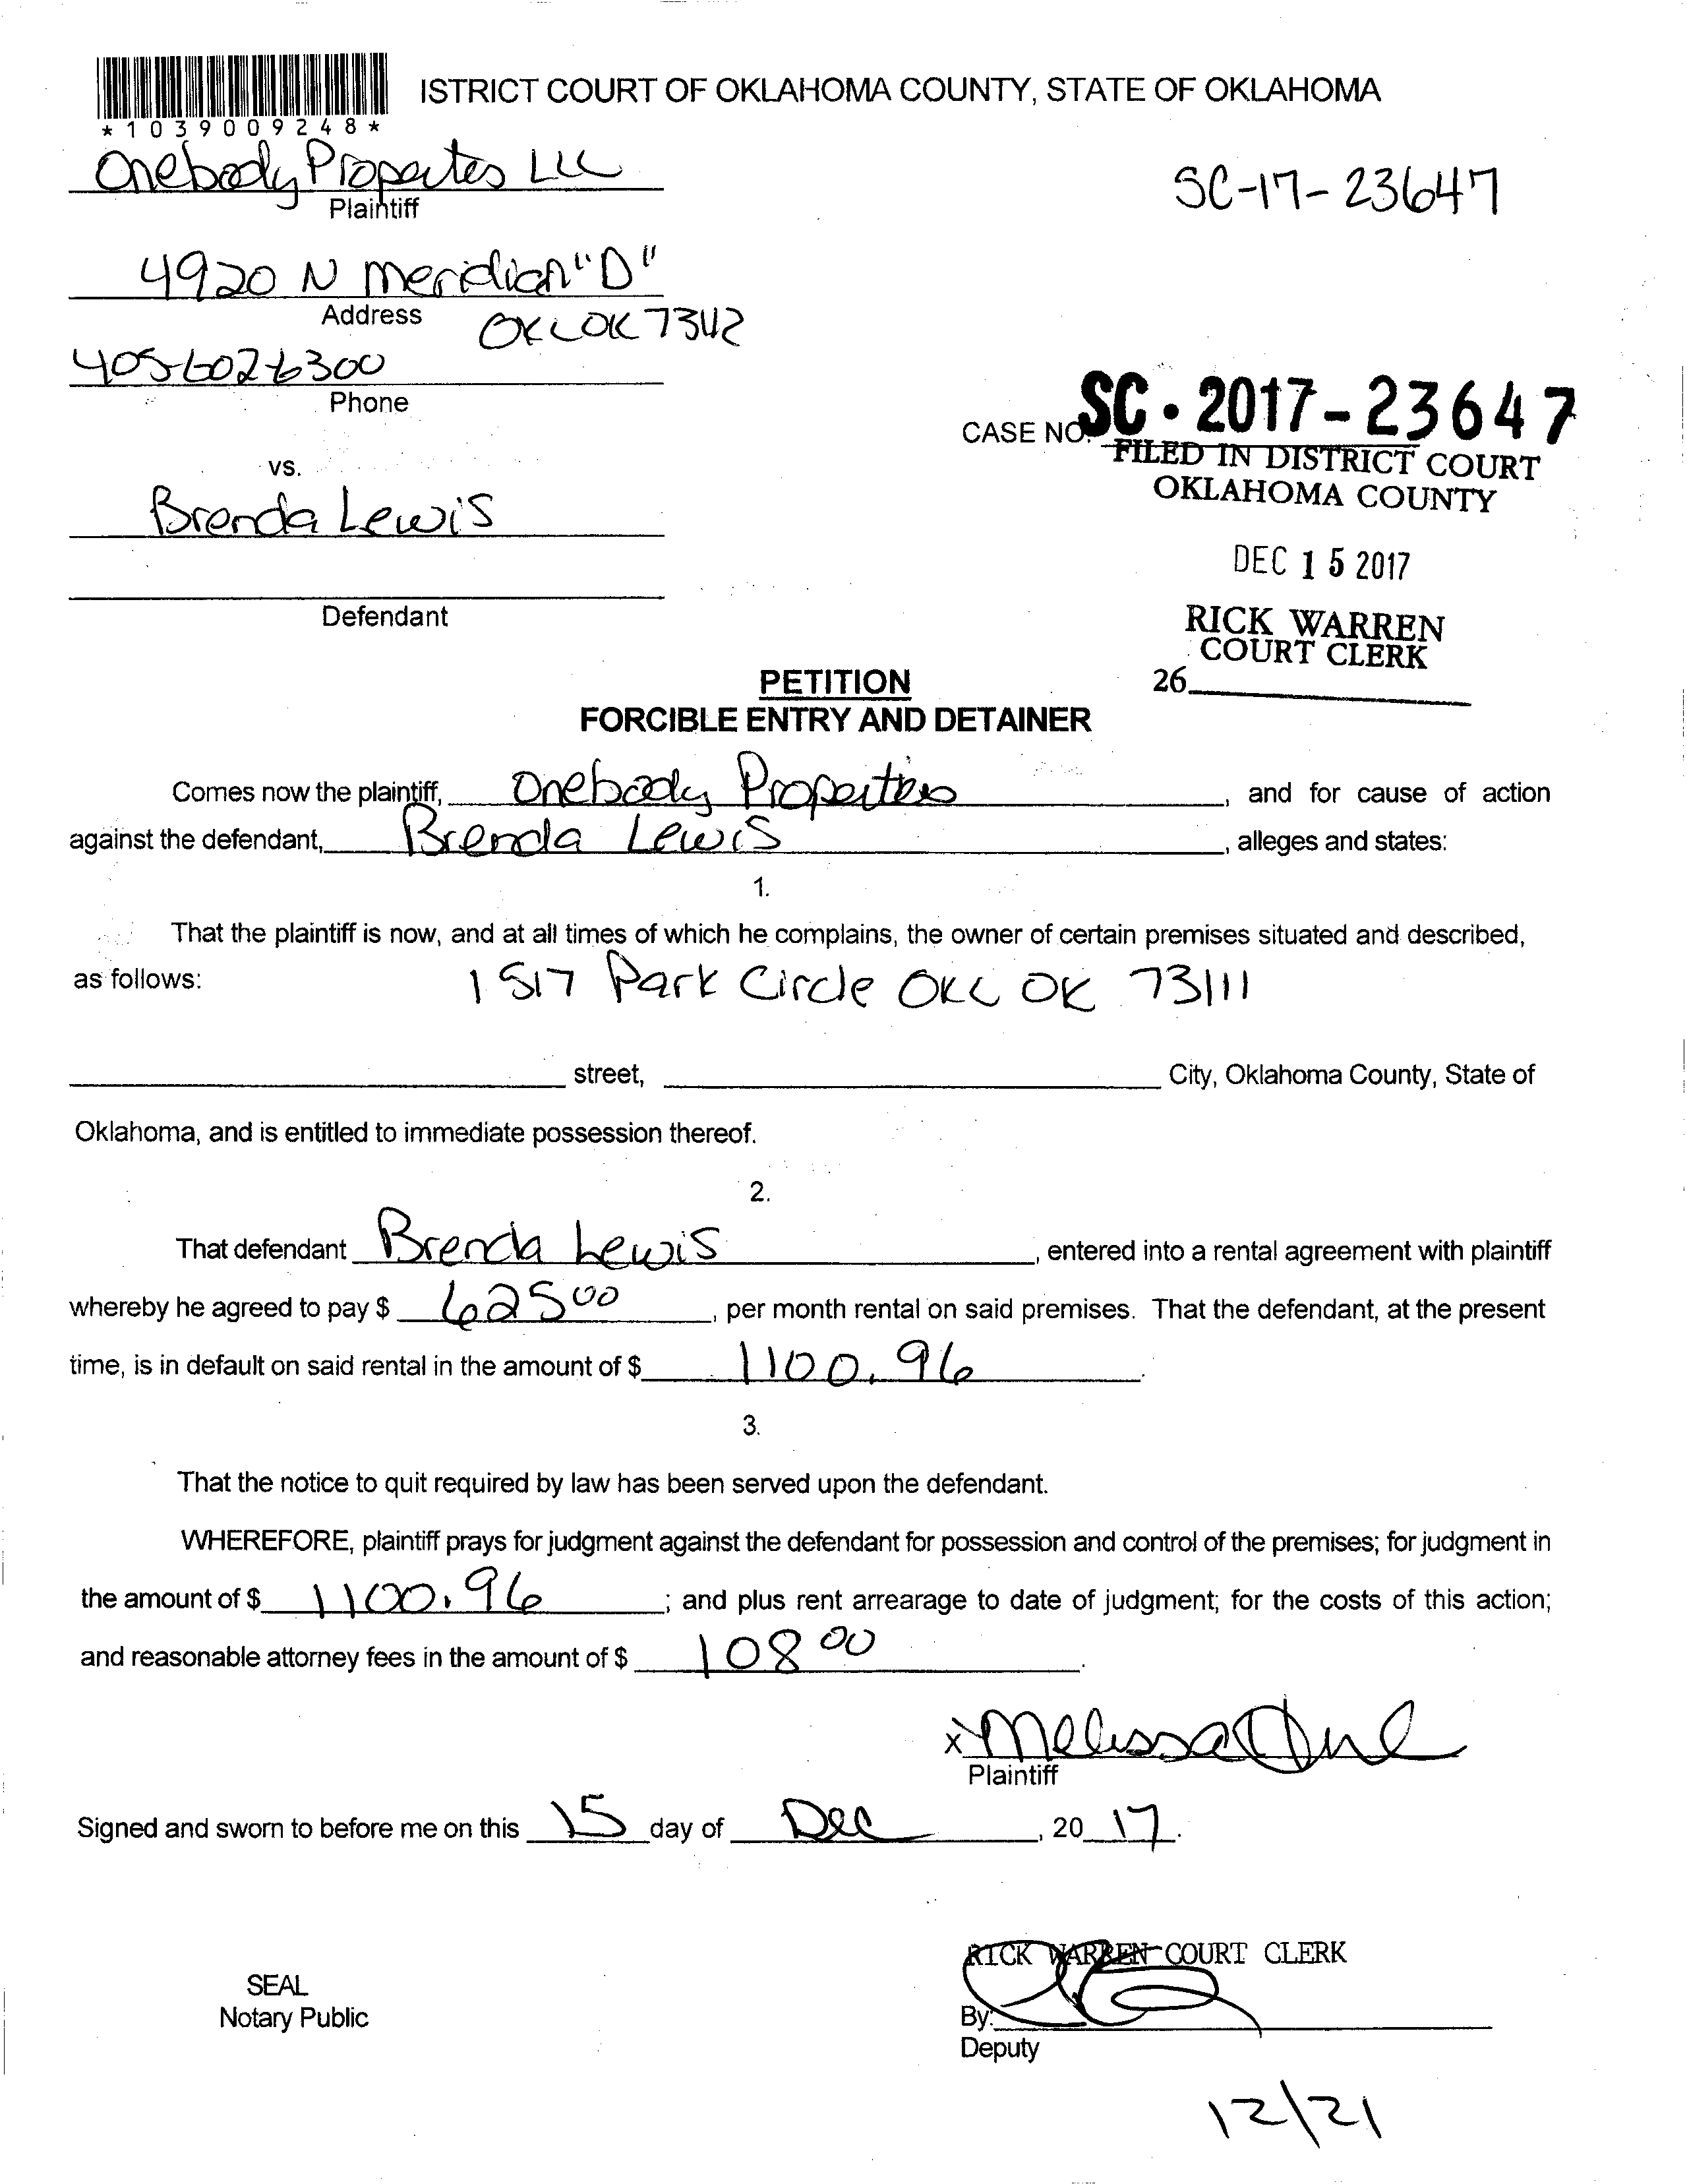 ISTRICT COURT OF OKLAHOMA COUNTY, STATE OF OKLAHOMA
*1039009248*
Onebody Propertes LLC
Plaintiff
SC-17-23647
4920 N Meridian "D"
Address
OKC OK 73112
405-602-6300
Phone
CASE NO. SC-2017-23647
FILED IN DISTRICT COURT
OKLAHOMA COUNTY
vs.
Brenda Lewis
DEC 15 2017
Defendant
RICK WARREN
COURT CLERK
26
PETITION
FORCIBLE ENTRY AND DETAINER
Comes now the plaintiff, Onebody Properties, and for cause of action
against the defendant, Brenda Lewis, alleges and states:
1.
That the plaintiff is now, and at all times of which he complains, the owner of certain premises situated and described,
as follows: 1517 Park Circle OKC OK 73111
street, City, Oklahoma County, State of
Oklahoma, and is entitled to immediate possession thereof.
2.
That defendant Brenda Lewis, entered into a rental agreement with plaintiff
whereby he agreed to pay $ 625 00, per month rental on said premises. That the defendant, at the present
time, is in default on said rental in the amount of $ 1100.96.
3.
That the notice to quit required by law has been served upon the defendant.
WHEREFORE, plaintiff prays for judgment against the defendant for possession and control of the premises; for judgment in
the amount of $ 1100.96; and plus rent arrearage to date of judgment; for the costs of this action;
and reasonable attorney fees in the amount of $ 108 00.
x Melissa
Plaintiff
Signed and sworn to before me on this 15 day of Dec, 20 17.
RICK WARREN COURT CLERK
SEAL
Notary Public
By:
Deputy
12/21